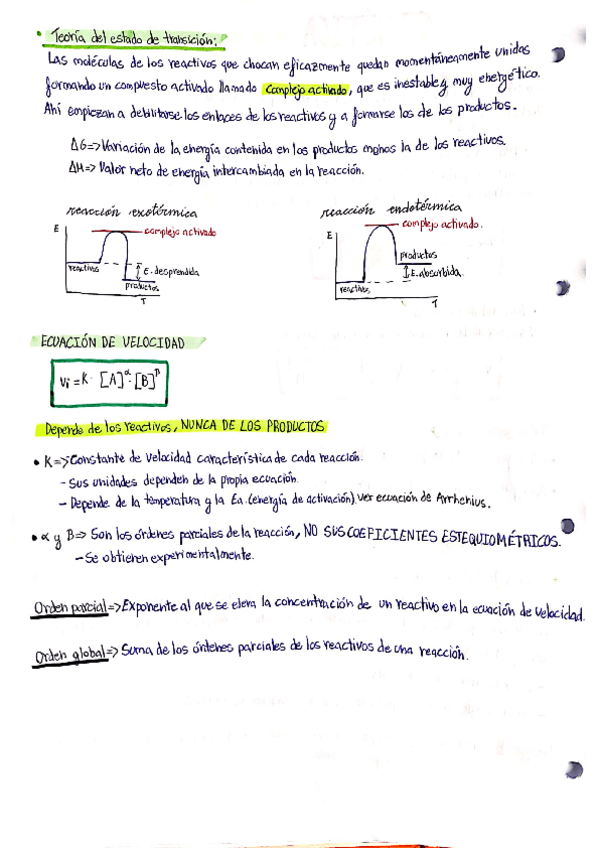 • Teoría del estado de transición:
Las moléculas de los reactivos que chocan eficazmente quedan momentáneamente unidas
formando un compuesto activado llamado complejo activado, que es inestable y muy energético.
Ahí empiezan a debilitarse los enlaces de los reactivos y a formarse los de los productos.
ΔG=> Variación de la energía contenida en los productos menos la de los reactivos.
ΔH=> Valor neto de energía intercambiada en la reacción.
reacción exotérmica
E
complejo activado
reactivos
E. desprendida
productos
T
reacción endotérmica
E
complejo activado.
productos
E. absorbida.
reactivos
T
ECUACIÓN DE VELOCIDAD
Vi = K · [A]^α · [B]^β
Depende de los reactivos, NUNCA DE LOS PRODUCTOS
• K=> Constante de velocidad característica de cada reacción.
- Sus unidades dependen de la propia ecuación.
- Depende de la temperatura y la Ea. (energía de activación). Ver ecuación de Arrhenius.
• α y β=> Son los órdenes parciales de la reacción, NO SUS COEFICIENTES ESTEQUIOMÉTRICOS.
- Se obtienen experimentalmente.
Orden parcial=> Exponente al que se eleva la concentración de un reactivo en la ecuación de velocidad.
Orden global=> Suma de los órdenes parciales de los reactivos de una reacción.